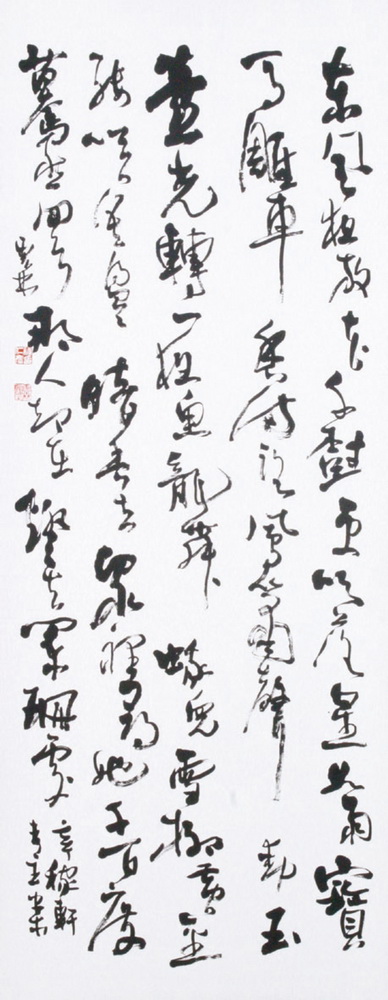 東風夜放花千樹更吹落星如雨寶
馬雕車香滿路鳳簫聲動玉
壺光轉一夜魚龍舞蛾兒雪柳黃金
縷笑語盈盈暗香去眾裡尋她千百度
驀然回首那人卻在燈火闌珊處
辛稼軒
青玉案